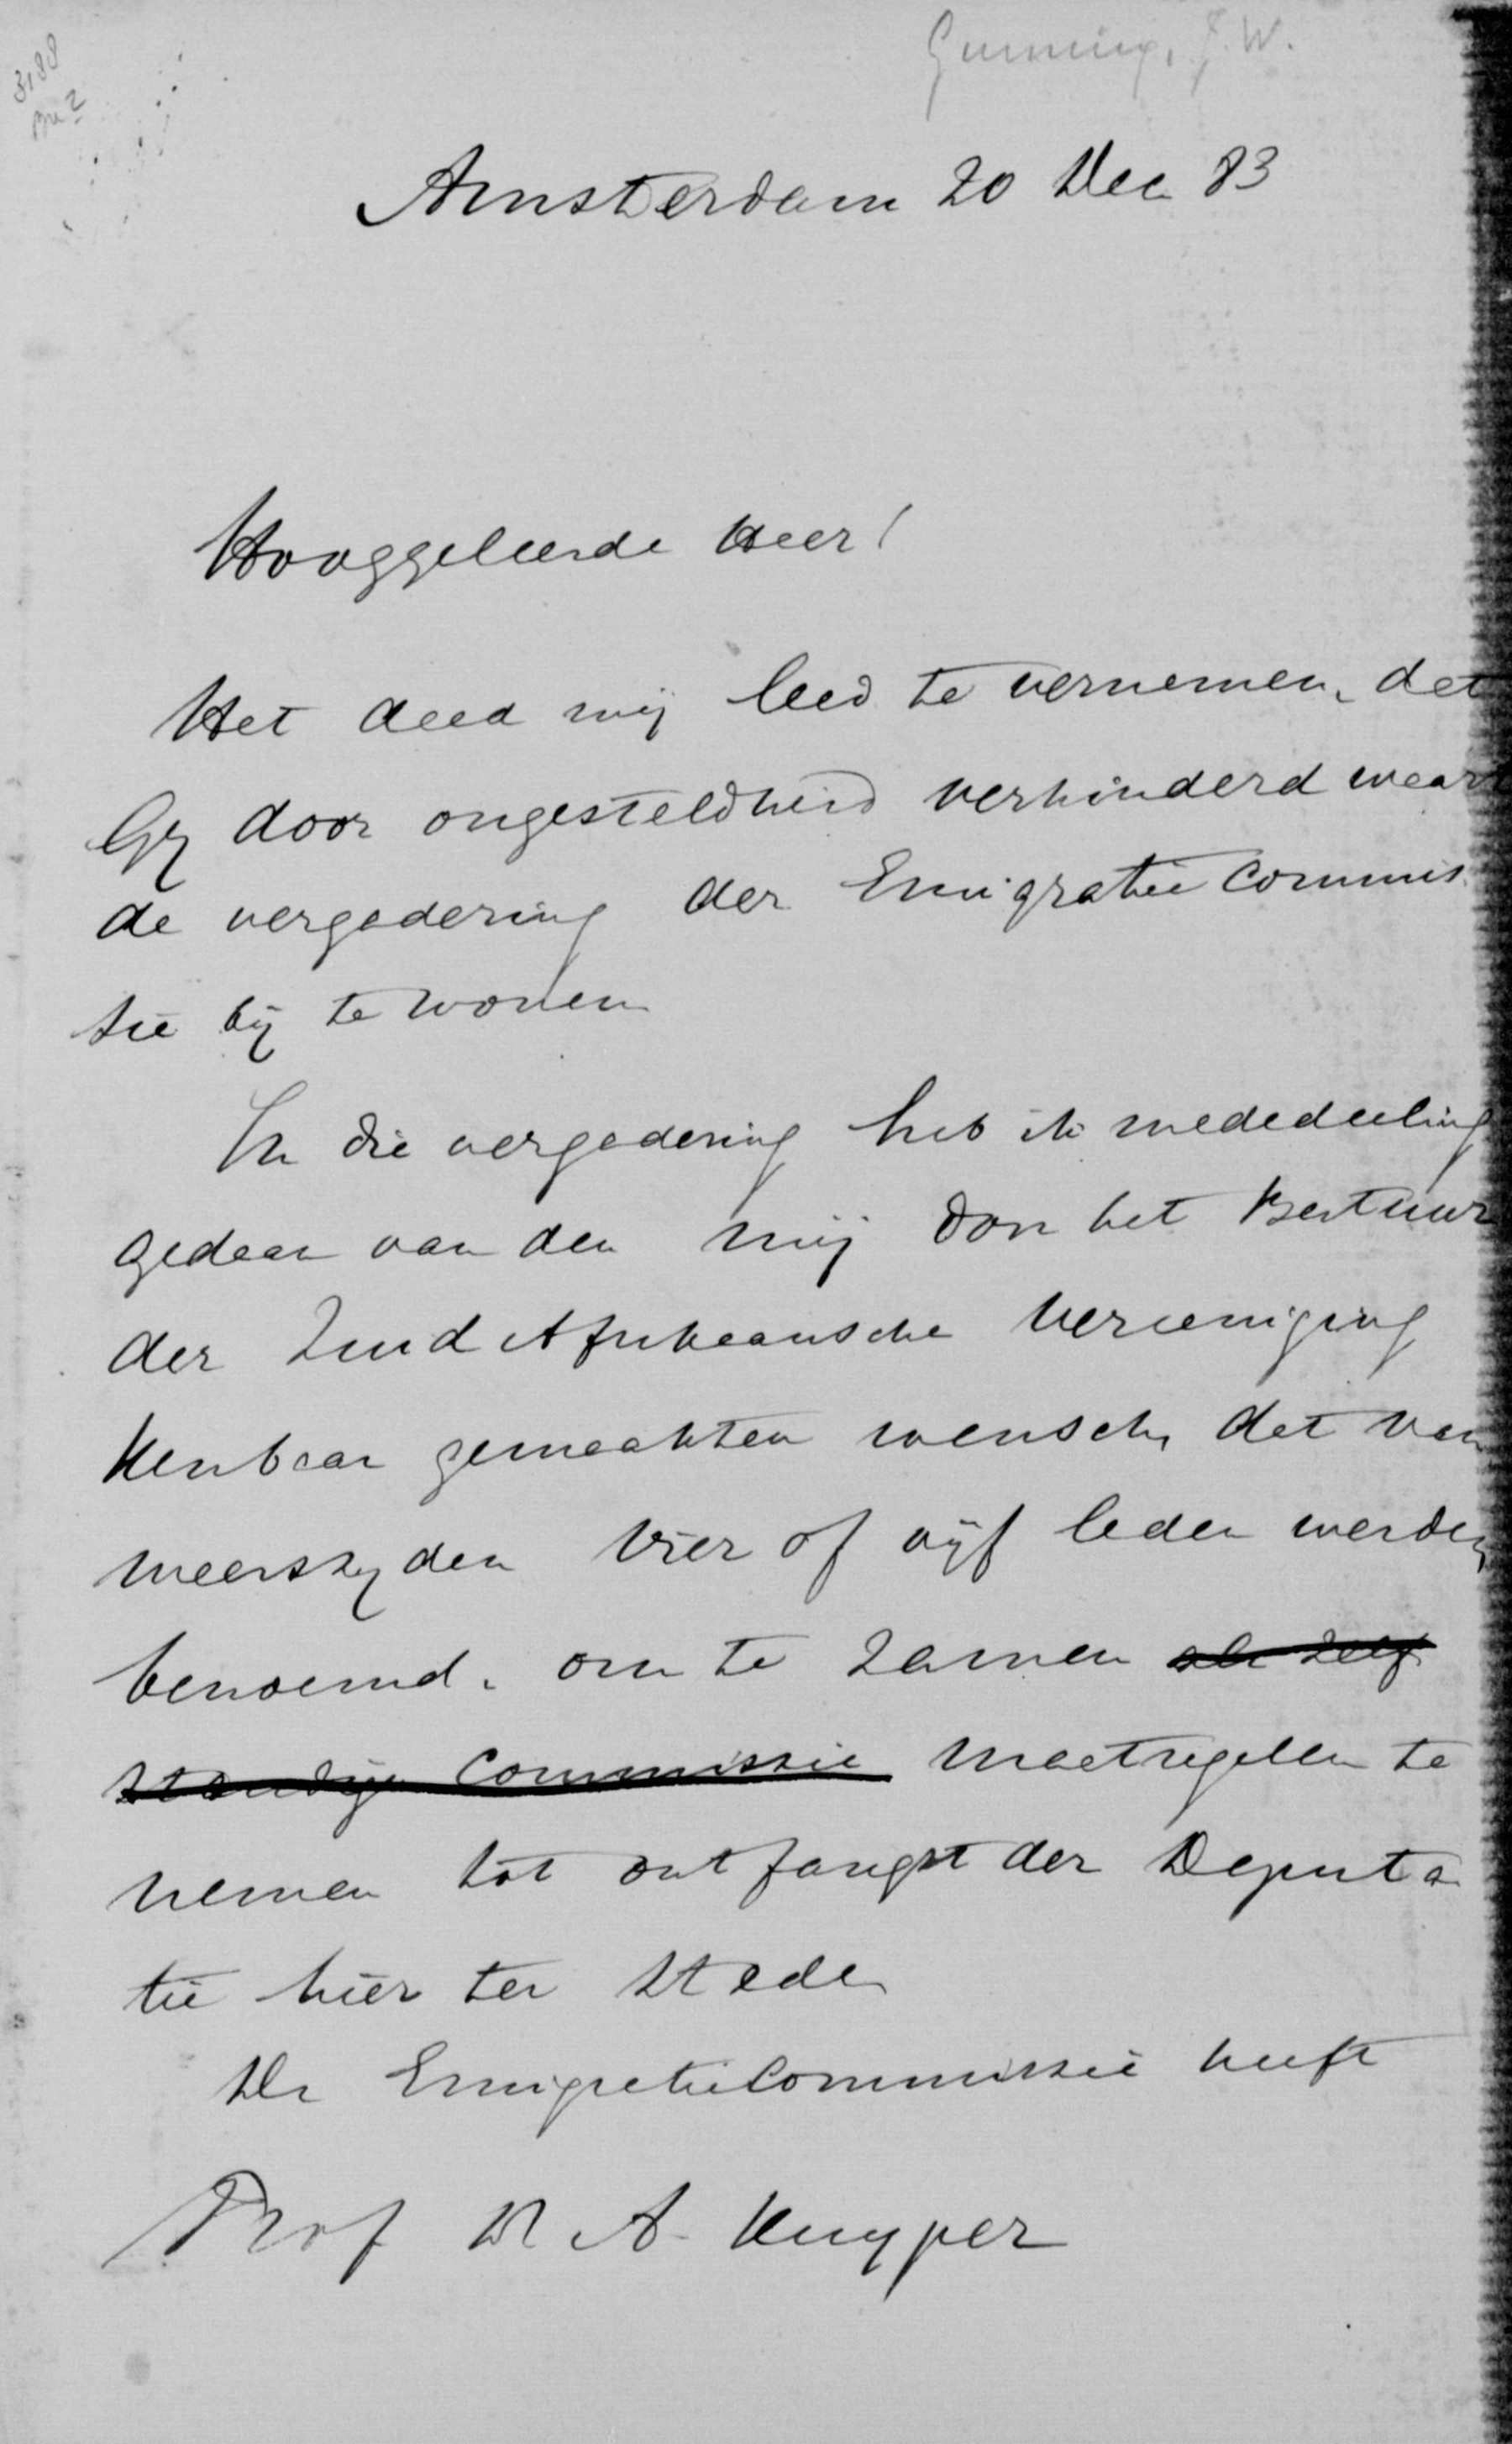 Gunning, J. W.
3188
Amsterdam 20 Dec 83
Hooggeleerde Heer!
Het deed mij leed te vernemen, dat
Gij door ongesteldheid verhinderd waart
de vergadering der Emigratie Commis
sie bij te wonen
In die vergadering heb ik mededeeling
gedaan van den mij door het Bestuur
der Zuid Afrikaansche Vereeniging
kenbaar gemaakten wensch, dat van
weerszijden vier of vijf leden werden
benoemd, om te zamen als zelf
standige Commissie maatregelen te
nemen tot ontfangst der Deputa
tie hier ter stede
De EmigratieCommissie heeft
Prof Dr A. Kuyper